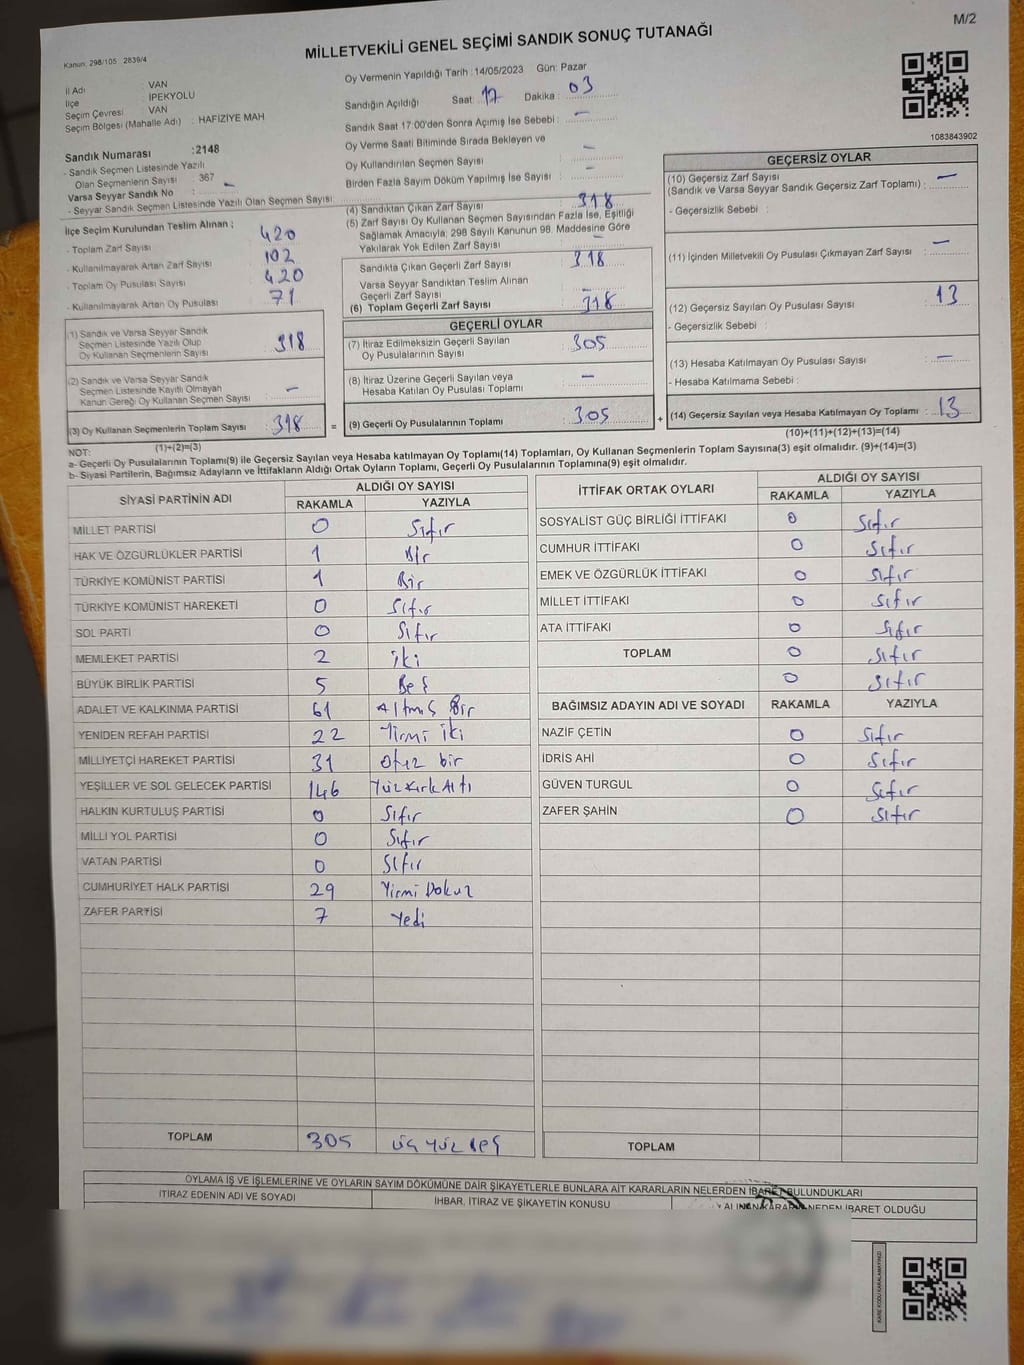 M/2
MİLLETVEKİLİ GENEL SEÇİMİ SANDIK SONUÇ TUTANAĞI
Kanun: 298/105 2839/4
İl Adı : VAN
İlçe : İPEKYOLU
Seçim Çevresi : VAN
Seçim Bölgesi (Mahalle Adı) : HAFİZİYE MAH
Sandık Numarası :2148
- Sandık Seçmen Listesinde Yazılı
Olan Seçmenlerin Sayısı : 367
Varsa Seyyar Sandık No : –
- Seyyar Sandık Seçmen Listesinde Yazılı Olan Seçmen Sayısı
İlçe Seçim Kurulundan Teslim Alınan ;
- Toplam Zarf Sayısı 420
- Kullanılmayarak Artan Zarf Sayısı 102
- Toplam Oy Pusulası Sayısı 420
- Kullanılmayarak Artan Oy Pusulası 71
(1) Sandık ve Varsa Seyyar Sandık
Seçmen Listesinde Yazılı Olup
Oy Kullanan Seçmenlerin Sayısı : 318
(2) Sandık ve Varsa Seyyar Sandık
Seçmen Listesinde Kayıtlı Olmayan
Kanun Gereği Oy Kullanan Seçmen Sayısı : –
(3) Oy Kullanan Seçmenlerin Toplam Sayısı : 318
(1)+(2)=(3)
Oy Vermenin Yapıldığı Tarih : 14/05/2023 Gün: Pazar
Sandığın Açıldığı Saat : 17 Dakika : 03
Sandık Saat 17:00'den Sonra Açımış İse Sebebi : –
Oy Verme Saati Bitiminde Sırada Bekleyen ve
Oy Kullandırılan Seçmen Sayısı : –
Birden Fazla Sayım Döküm Yapılmış İse Sayısı : –
(4) Sandıktan Çıkan Zarf Sayısı : 318
(5) Zarf Sayısı Oy Kullanan Seçmen Sayısından Fazla İse, Eşitliği
Sağlamak Amacıyla; 298 Sayılı Kanunun 98. Maddesine Göre
Yakılarak Yok Edilen Zarf Sayısı : –
Sandıkta Çıkan Geçerli Zarf Sayısı : 318
Varsa Seyyar Sandıktan Teslim Alınan
Geçerli Zarf Sayısı : –
(6) Toplam Geçerli Zarf Sayısı : 318
GEÇERLİ OYLAR
(7) İtiraz Edilmeksizin Geçerli Sayılan
Oy Pusulalarının Sayısı : 305
(8) İtiraz Üzerine Geçerli Sayılan veya
Hesaba Katılan Oy Pusulası Toplamı : –
= (9) Geçerli Oy Pusulalarının Toplamı : 305 +
1083843902
GEÇERSİZ OYLAR
(10) Geçersiz Zarf Sayısı
(Sandık ve Varsa Seyyar Sandık Geçersiz Zarf Toplamı) : –
- Geçersizlik Sebebi :
(11) İçinden Milletvekili Oy Pusulası Çıkmayan Zarf Sayısı : –
(12) Geçersiz Sayılan Oy Pusulası Sayısı : 13
- Geçersizlik Sebebi :
(13) Hesaba Katılmayan Oy Pusulası Sayısı : –
- Hesaba Katılmama Sebebi :
(14) Geçersiz Sayılan veya Hesaba Katılmayan Oy Toplamı : 13
(10)+(11)+(12)+(13)=(14)
NOT:
a- Geçerli Oy Pusulalarının Toplamı(9) ile Geçersiz Sayılan veya Hesaba katılmayan Oy Toplamı(14) Toplamları, Oy Kullanan Seçmenlerin Toplam Sayısına(3) eşit olmalıdır. (9)+(14)=(3)
b- Siyasi Partilerin, Bağımsız Adayların ve İttifakların Aldığı Ortak Oyların Toplamı, Geçerli Oy Pusulalarının Toplamına(9) eşit olmalıdır.
SİYASİ PARTİNİN ADI ALDIĞI OY SAYISI
RAKAMLA YAZIYLA
MİLLET PARTİSİ 0 Sıfır
HAK VE ÖZGÜRLÜKLER PARTİSİ 1 Bir
TÜRKİYE KOMÜNİST PARTİSİ 1 Bir
TÜRKİYE KOMÜNİST HAREKETİ 0 Sıfır
SOL PARTİ 0 Sıfır
MEMLEKET PARTİSİ 2 iki
BÜYÜK BİRLİK PARTİSİ 5 Beş
ADALET VE KALKINMA PARTİSİ 61 Altmış Bir
YENİDEN REFAH PARTİSİ 22 Yirmi iki
MİLLİYETÇİ HAREKET PARTİSİ 31 Otuz bir
YEŞİLLER VE SOL GELECEK PARTİSİ 146 Yüz Kırk Altı
HALKIN KURTULUŞ PARTİSİ 0 Sıfır
MİLLİ YOL PARTİSİ 0 Sıfır
VATAN PARTİSİ 0 Sıfır
CUMHURİYET HALK PARTİSİ 29 Yirmi Dokuz
ZAFER PARTİSİ 7 Yedi
TOPLAM 305 üç yüz Beş
İTTİFAK ORTAK OYLARI ALDIĞI OY SAYISI
RAKAMLA YAZIYLA
SOSYALİST GÜÇ BİRLİĞİ İTTİFAKI 0 Sıfır
CUMHUR İTTİFAKI 0 Sıfır
EMEK VE ÖZGÜRLÜK İTTİFAKI 0 Sıfır
MİLLET İTTİFAKI 0 Sıfır
ATA İTTİFAKI 0 Sıfır
TOPLAM 0 Sıfır
0 Sıfır
BAĞIMSIZ ADAYIN ADI VE SOYADI RAKAMLA YAZIYLA
NAZİF ÇETİN 0 Sıfır
İDRİS AHİ 0 Sıfır
GÜVEN TURGUL 0 Sıfır
ZAFER ŞAHİN 0 Sıfır
TOPLAM
OYLAMA İŞ VE İŞLEMLERİNE VE OYLARIN SAYIM DÖKÜMÜNE DAİR ŞİKAYETLERLE BUNLARA AİT KARARLARIN NELERDEN İBARET BULUNDUKLARI
İTİRAZ EDENİN ADI VE SOYADI İHBAR, İTİRAZ VE ŞİKAYETİN KONUSU NEDEN İBARET OLDUĞU
KARE KODU KARALAMAYINIZ!